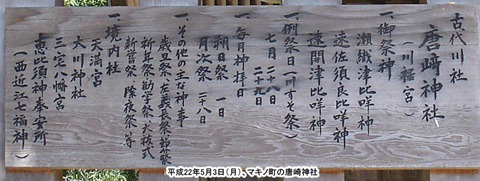 古代川社
唐崎神社
(川裾宮)
一、御祭神
瀬織津比咩神
速佐須良比咩神
速開津比咩神
一、例祭日(川すそ祭)
七月 二十八日
二十九日
一、毎月神拝日
朔日祭 一日
月次祭 二十八日
一、その他の主な神事
歳旦祭、左義長祭、節分祭
祈年祭、勧学祭、大祓式
新嘗祭、除夜祭、等
一、境内社
天満宮
大川神社
三宅八幡宮
恵比須神奉安所
(西近江七福神)
平成22年5月3日(月)、マキノ町の唐崎神社